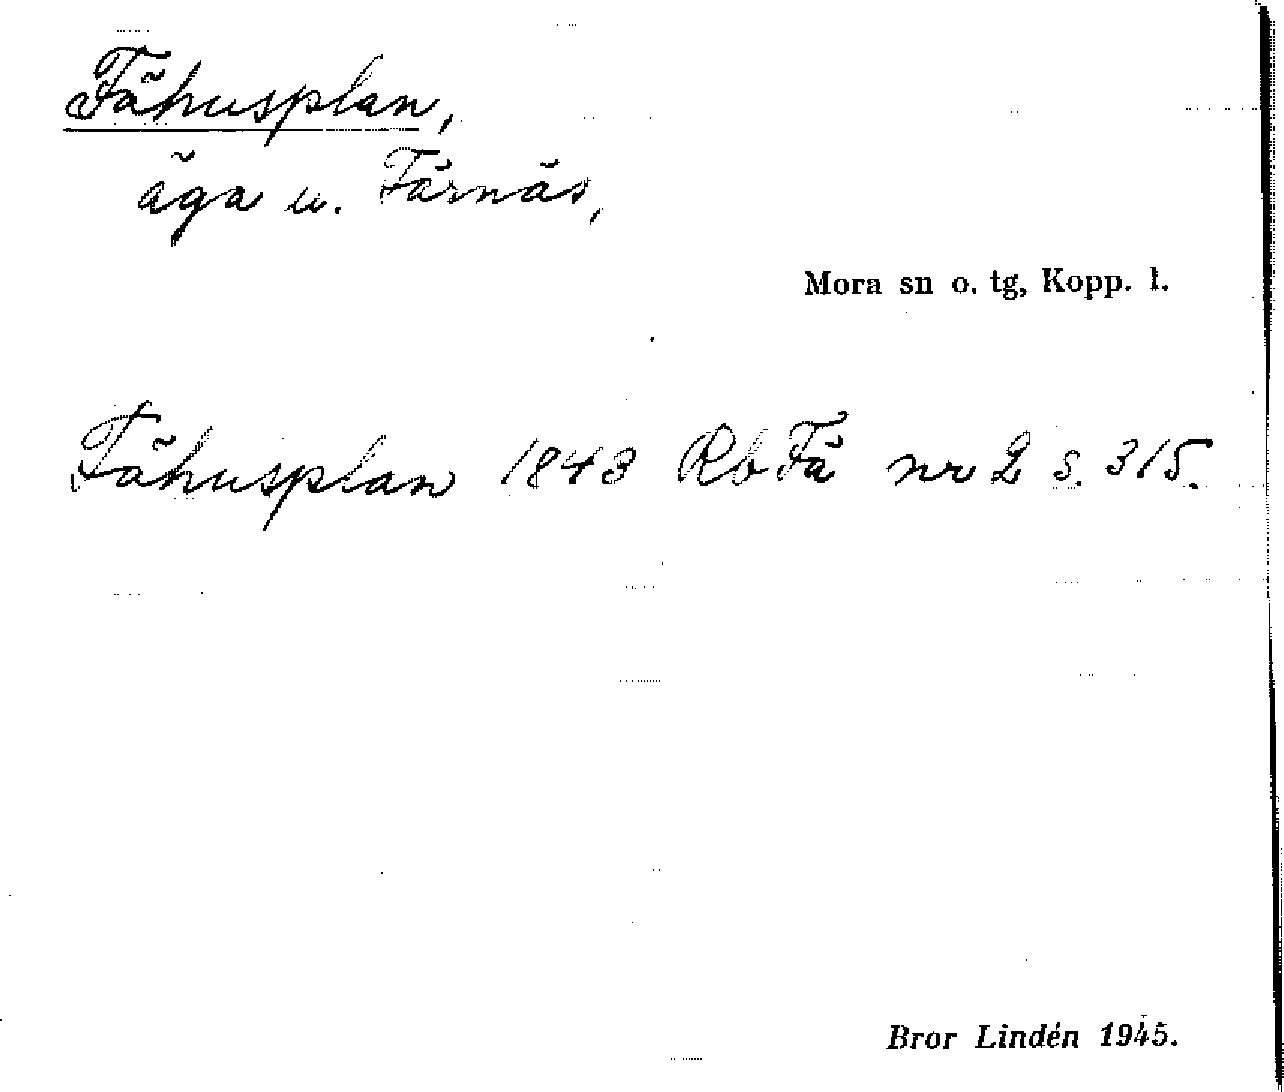 Fähusplan,
äga u. Färnäs,
Mora sn o. tg, Kopp. l.
Fähusplan 1843 Rb Fä nr 2 s. 315.
Bror Lindén 1945.